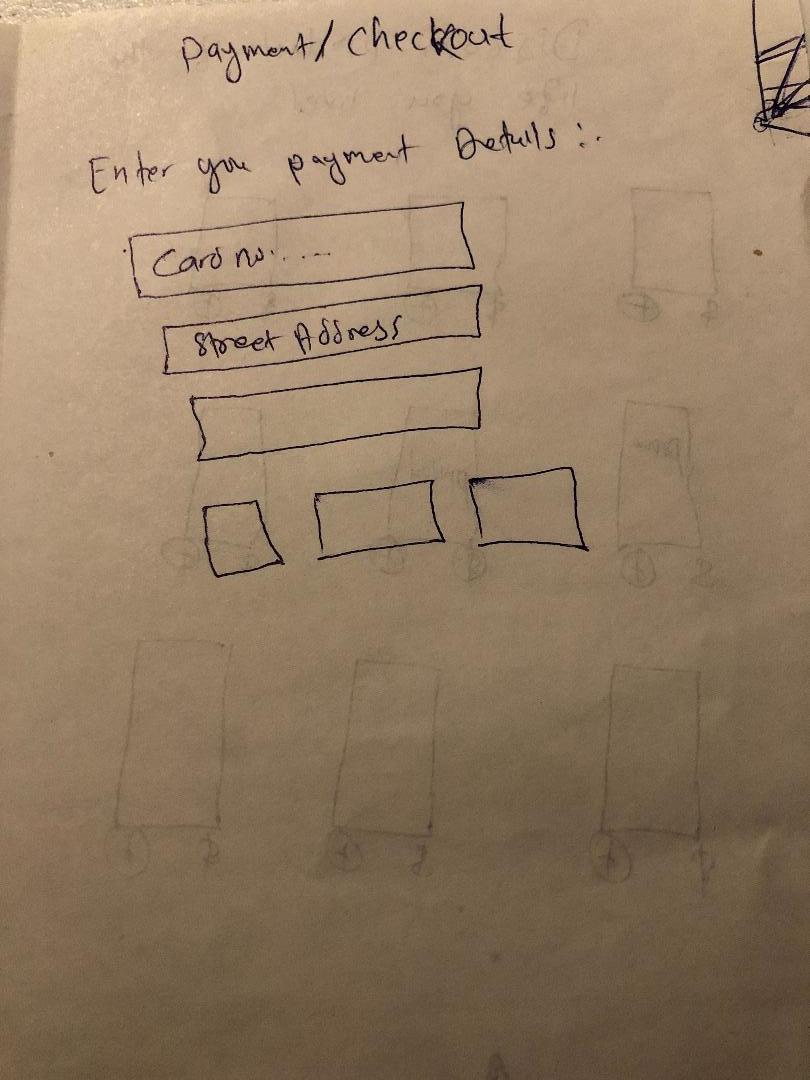 Payment/Checkout
Enter you payment Details :.
Card no.....
Street Address